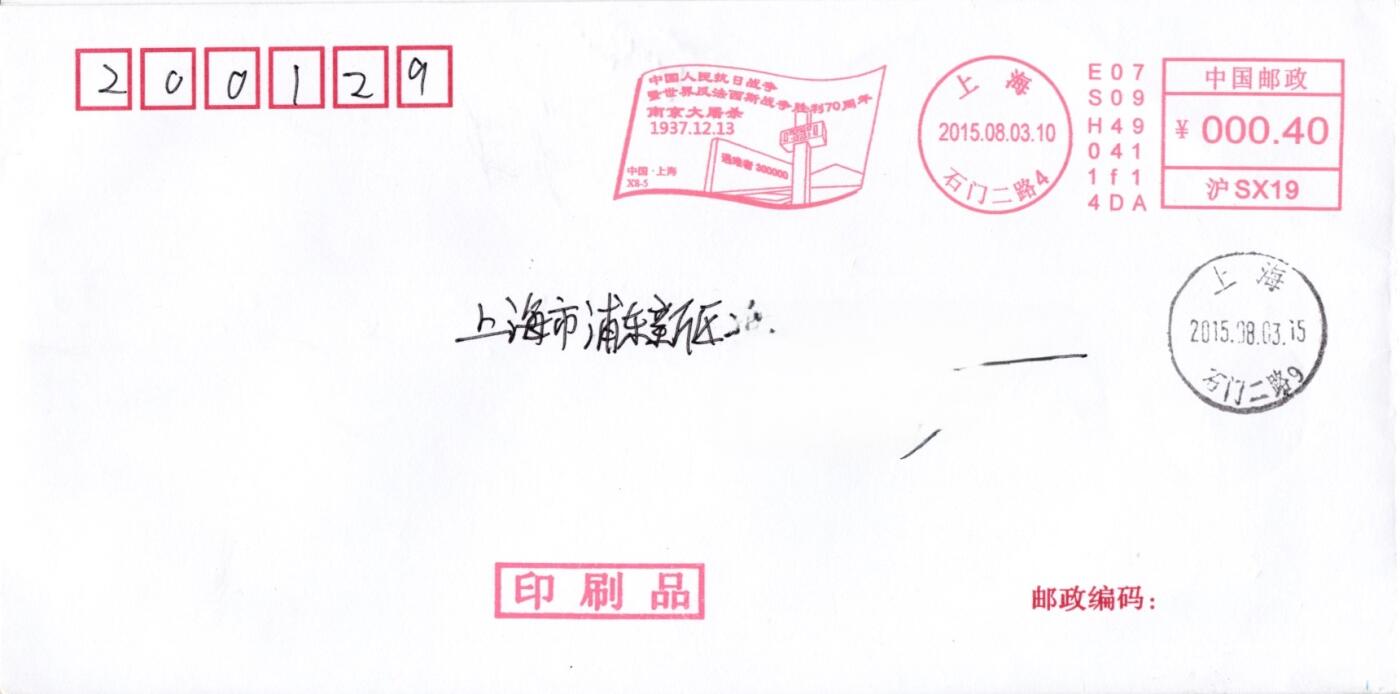 200129
中国人民抗日战争
暨世界反法西斯战争胜利70周年
南京大屠杀
1937.12.13
遇难者 300000
中国·上海
X8-5
上海
2015.08.03.10
石门二路4
E07
S09
H49
041
1f1
4DA
中国邮政
¥ 000.40
沪SX19
上海
2015.08.03.15
石门二路9
上海市浦东新区
印刷品
邮政编码：